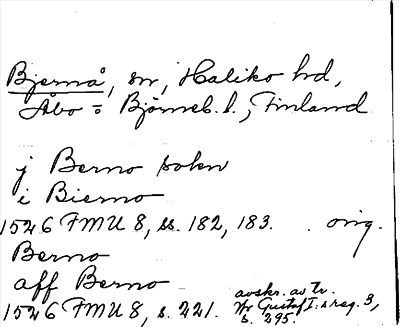 Bjernå, sn, Haliko hd,
Åbo o Björneb. l., Finland
j Berno sokn
i Bierno
1546 FMU 8, ss. 182, 183. orig.
Berno
aff Berno
1546 FMU 8, s. 221. avskr. av tr.
Gustaf I:s reg. 3,
s. 295.